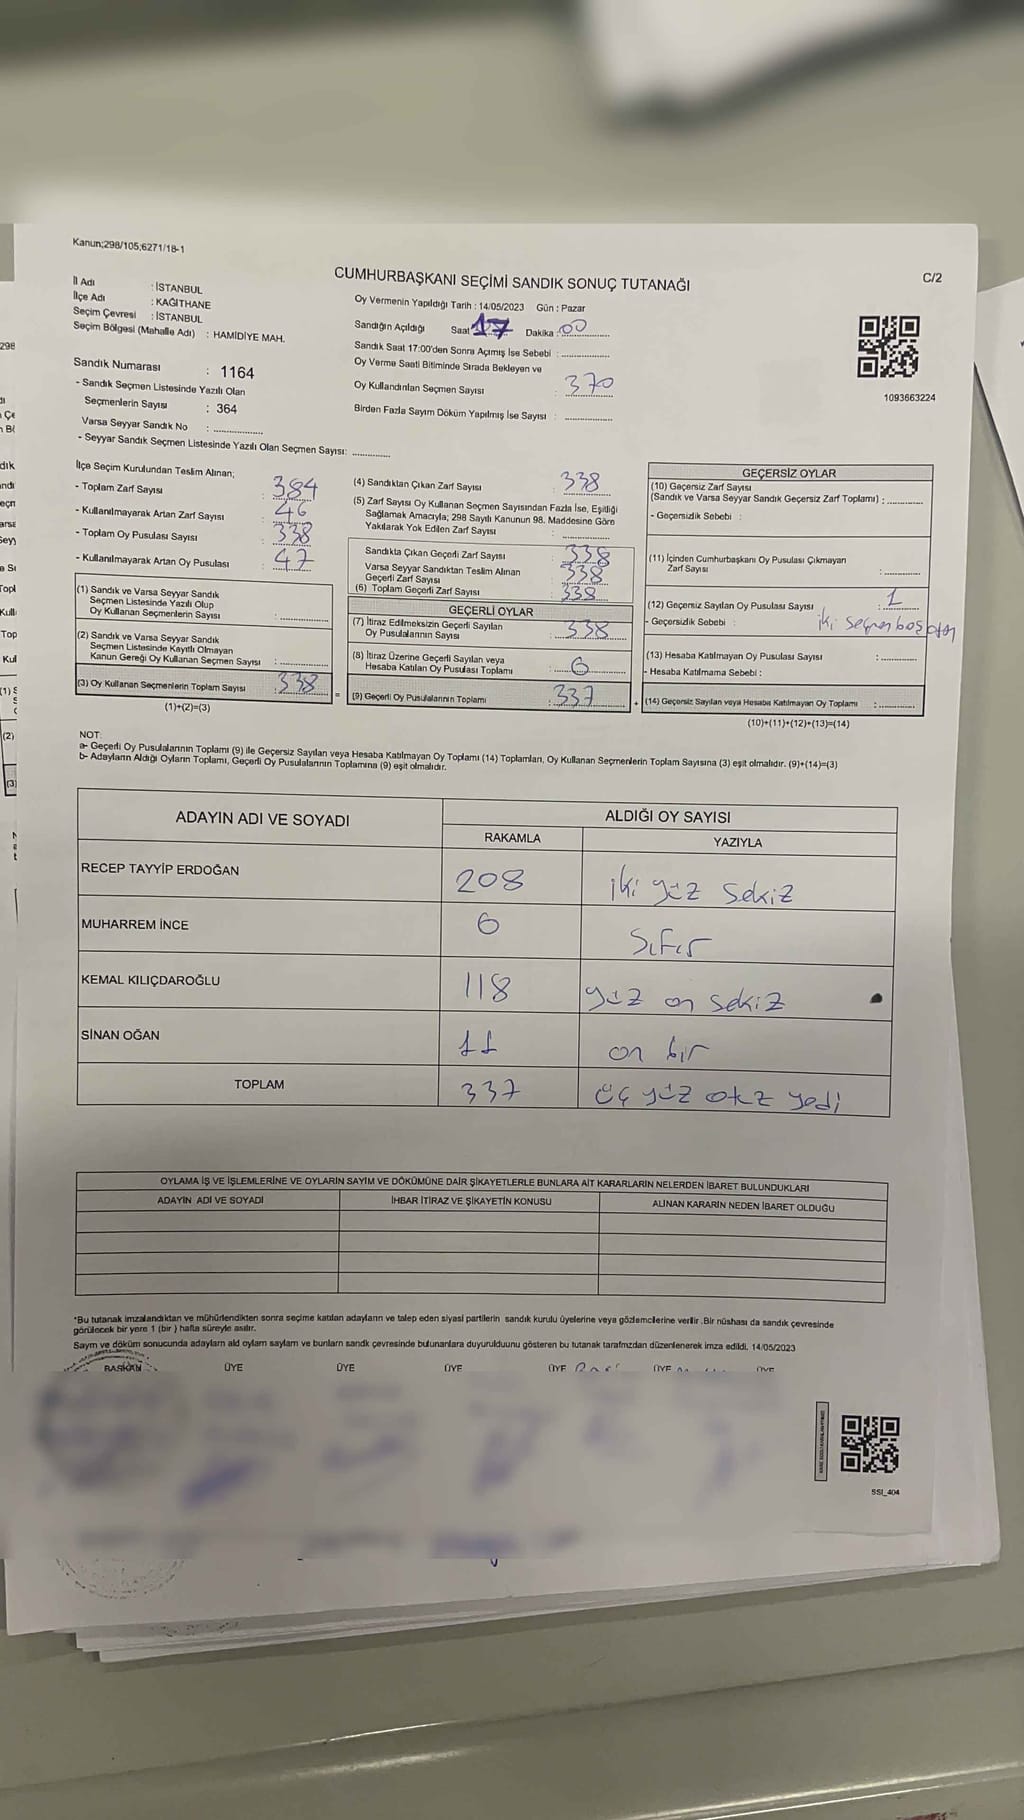 Kanun;298/105;6271/18-1
CUMHURBAŞKANI SEÇİMİ SANDIK SONUÇ TUTANAĞI
C/2
İl Adı : İSTANBUL
İlçe Adı : KAĞITHANE
Seçim Çevresi : İSTANBUL
Seçim Bölgesi (Mahalle Adı) : HAMİDİYE MAH.
Oy Vermenin Yapıldığı Tarih : 14/05/2023 Gün : Pazar
Sandığın Açıldığı Saat 17 Dakika : 00
Sandık Saat 17:00'den Sonra Açımış İse Sebebi :
Oy Verme Saati Bitiminde Sırada Bekleyen ve
Oy Kullandırılan Seçmen Sayısı : 370
Birden Fazla Sayım Döküm Yapılmış İse Sayısı :
1093663224
Sandık Numarası : 1164
- Sandık Seçmen Listesinde Yazılı Olan
Seçmenlerin Sayısı : 364
Varsa Seyyar Sandık No :
- Seyyar Sandık Seçmen Listesinde Yazılı Olan Seçmen Sayısı:
İlçe Seçim Kurulundan Teslim Alınan;
- Toplam Zarf Sayısı : 384
- Kullanılmayarak Artan Zarf Sayısı : 46
- Toplam Oy Pusulası Sayısı : 338
- Kullanılmayarak Artan Oy Pusulası : 47
(1) Sandık ve Varsa Seyyar Sandık
Seçmen Listesinde Yazılı Olup
Oy Kullanan Seçmenlerin Sayısı :
(2) Sandık ve Varsa Seyyar Sandık
Seçmen Listesinde Kayıtlı Olmayan
Kanun Gereği Oy Kullanan Seçmen Sayısı :
(3) Oy Kullanan Seçmenlerin Toplam Sayısı : 338
(1)+(2)=(3)
(4) Sandıktan Çıkan Zarf Sayısı : 338
(5) Zarf Sayısı Oy Kullanan Seçmen Sayısından Fazla İse, Eşitliği
Sağlamak Amacıyla; 298 Sayılı Kanunun 98. Maddesine Göre
Yakılarak Yok Edilen Zarf Sayısı :
Sandıkta Çıkan Geçerli Zarf Sayısı : 338
Varsa Seyyar Sandıktan Teslim Alınan
Geçerli Zarf Sayısı : 338
(6) Toplam Geçerli Zarf Sayısı : 338
GEÇERLİ OYLAR
(7) İtiraz Edilmeksizin Geçerli Sayılan
Oy Pusulalarının Sayısı : 338
(8) İtiraz Üzerine Geçerli Sayılan veya
Hesaba Katılan Oy Pusulası Toplamı : 0
(9) Geçerli Oy Pusulalarının Toplamı : 337
GEÇERSİZ OYLAR
(10) Geçersiz Zarf Sayısı
(Sandık ve Varsa Seyyar Sandık Geçersiz Zarf Toplamı) :
- Geçersizlik Sebebi :
(11) İçinden Cumhurbaşkanı Oy Pusulası Çıkmayan
Zarf Sayısı :
(12) Geçersiz Sayılan Oy Pusulası Sayısı : 1
- Geçersizlik Sebebi : iki seçmen boş
(13) Hesaba Katılmayan Oy Pusulası Sayısı :
- Hesaba Katılmama Sebebi :
(14) Geçersiz Sayılan veya Hesaba Katılmayan Oy Toplamı :
(10)+(11)+(12)+(13)=(14)
NOT:
a- Geçerli Oy Pusulalarının Toplamı (9) ile Geçersiz Sayılan veya Hesaba Katılmayan Oy Toplamı (14) Toplamları, Oy Kullanan Seçmenlerin Toplam Sayısına (3) eşit olmalıdır. (9)+(14)=(3)
b- Adayların Aldığı Oyların Toplamı, Geçerli Oy Pusulalarının Toplamına (9) eşit olmalıdır.
ADAYIN ADI VE SOYADI ALDIĞI OY SAYISI
RAKAMLA YAZIYLA
RECEP TAYYİP ERDOĞAN 208 iki yüz sekiz
MUHARREM İNCE 0 Sıfır
KEMAL KILIÇDAROĞLU 118 yüz on sekiz
SİNAN OĞAN 11 on bir
TOPLAM 337 üç yüz otz yedi
OYLAMA İŞ VE İŞLEMLERİNE VE OYLARIN SAYIM VE DÖKÜMÜNE DAİR ŞİKAYETLERLE BUNLARA AİT KARARLARIN NELERDEN İBARET BULUNDUKLARI
ADAYIN ADI VE SOYADI İHBAR İTİRAZ VE ŞİKAYETİN KONUSU ALINAN KARARIN NEDEN İBARET OLDUĞU
*Bu tutanak imzalandıktan ve mühürlendikten sonra seçime katılan adayların ve talep eden siyasi partilerin sandık kurulu üyelerine veya gözlemcilerine verilir .Bir nüshası da sandık çevresinde
görülecek bir yere 1 (bir ) hafta süreyle asılır.
Sayım ve döküm sonucunda adayların ald oyların sayların ve bunların sandk çevresinde bulunanlara duyurulduunu gösteren bu tutanak tarafmzdan düzenlenerek imza edildi. 14/05/2023
BAŞKAN ÜYE ÜYE ÜYE ÜYE ÜYE ÜYE
SSI_404